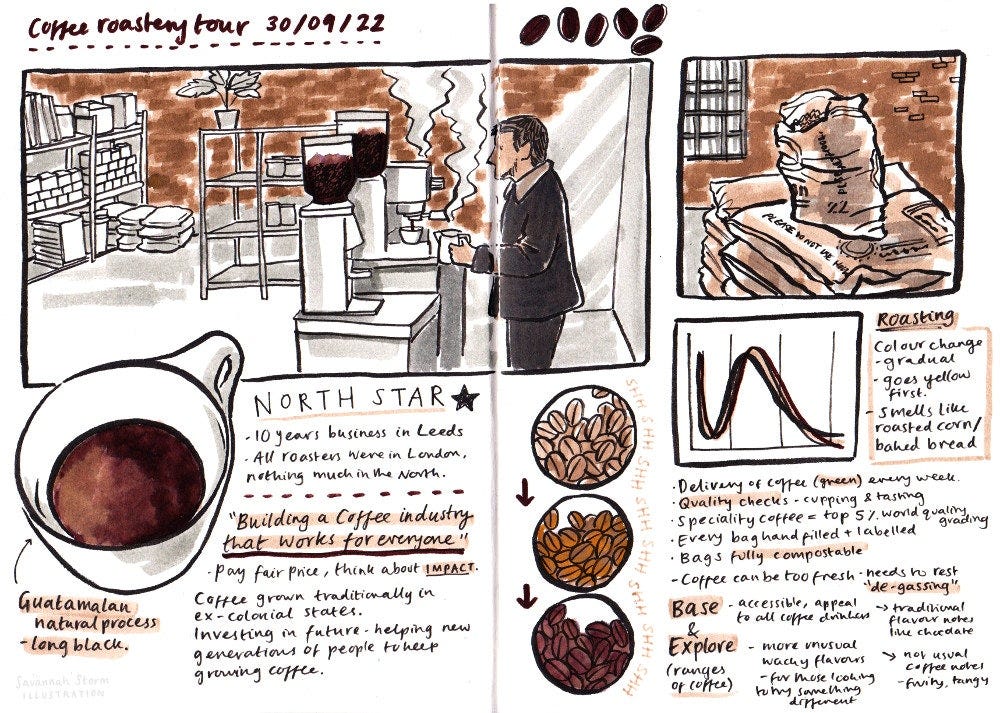 Coffee roastery tour 30/09/22
PLEASE DO NOT USE HOOKS
NORTH STAR
- 10 years business in Leeds
- All roasters were in London,
nothing much in the North.
"Building a Coffee industry
that works for everyone"
- Pay fair price, think about IMPACT.
Coffee grown traditionally in
ex-colonial states.
Investing in future - helping new
generations of people to keep
growing coffee.
Guatamalan
natural process
- long black.
Savannah Storm
ILLUSTRATION
SHH SHH SHH SHH SHH SHH SHH SHH
Roasting
Colour change
- gradual
- goes yellow
first.
- smells like
roasted corn/
baked bread
· Delivery of coffee (green) every week.
· Quality checks - cupping & tasting
· Speciality coffee = top 5% world quality
grading
· Every bag hand filled + labelled
· Bags fully compostable
- Coffee can be too fresh - needs to rest
"de-gassing"
Base - accessible, appeal
to all coffee drinkers
→ traditional
flavour notes
like chocolate
&
Explore
(ranges
of coffee)
- more unusual
wacky flavours
- for those looking
to try something
different
→ not usual
coffee notes
- fruity, tangy